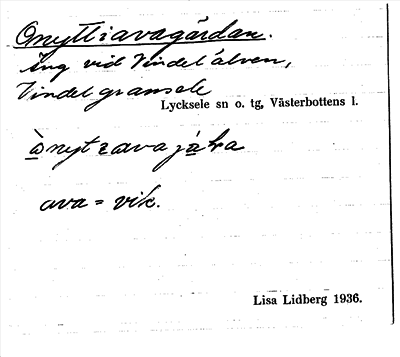 Onyttiavagårdan.
Äng vid Vindelälven,
Vindelgransele
Lycksele sn o. tg, Västerbottens l.
ava = vik.
Lisa Lidberg 1936.